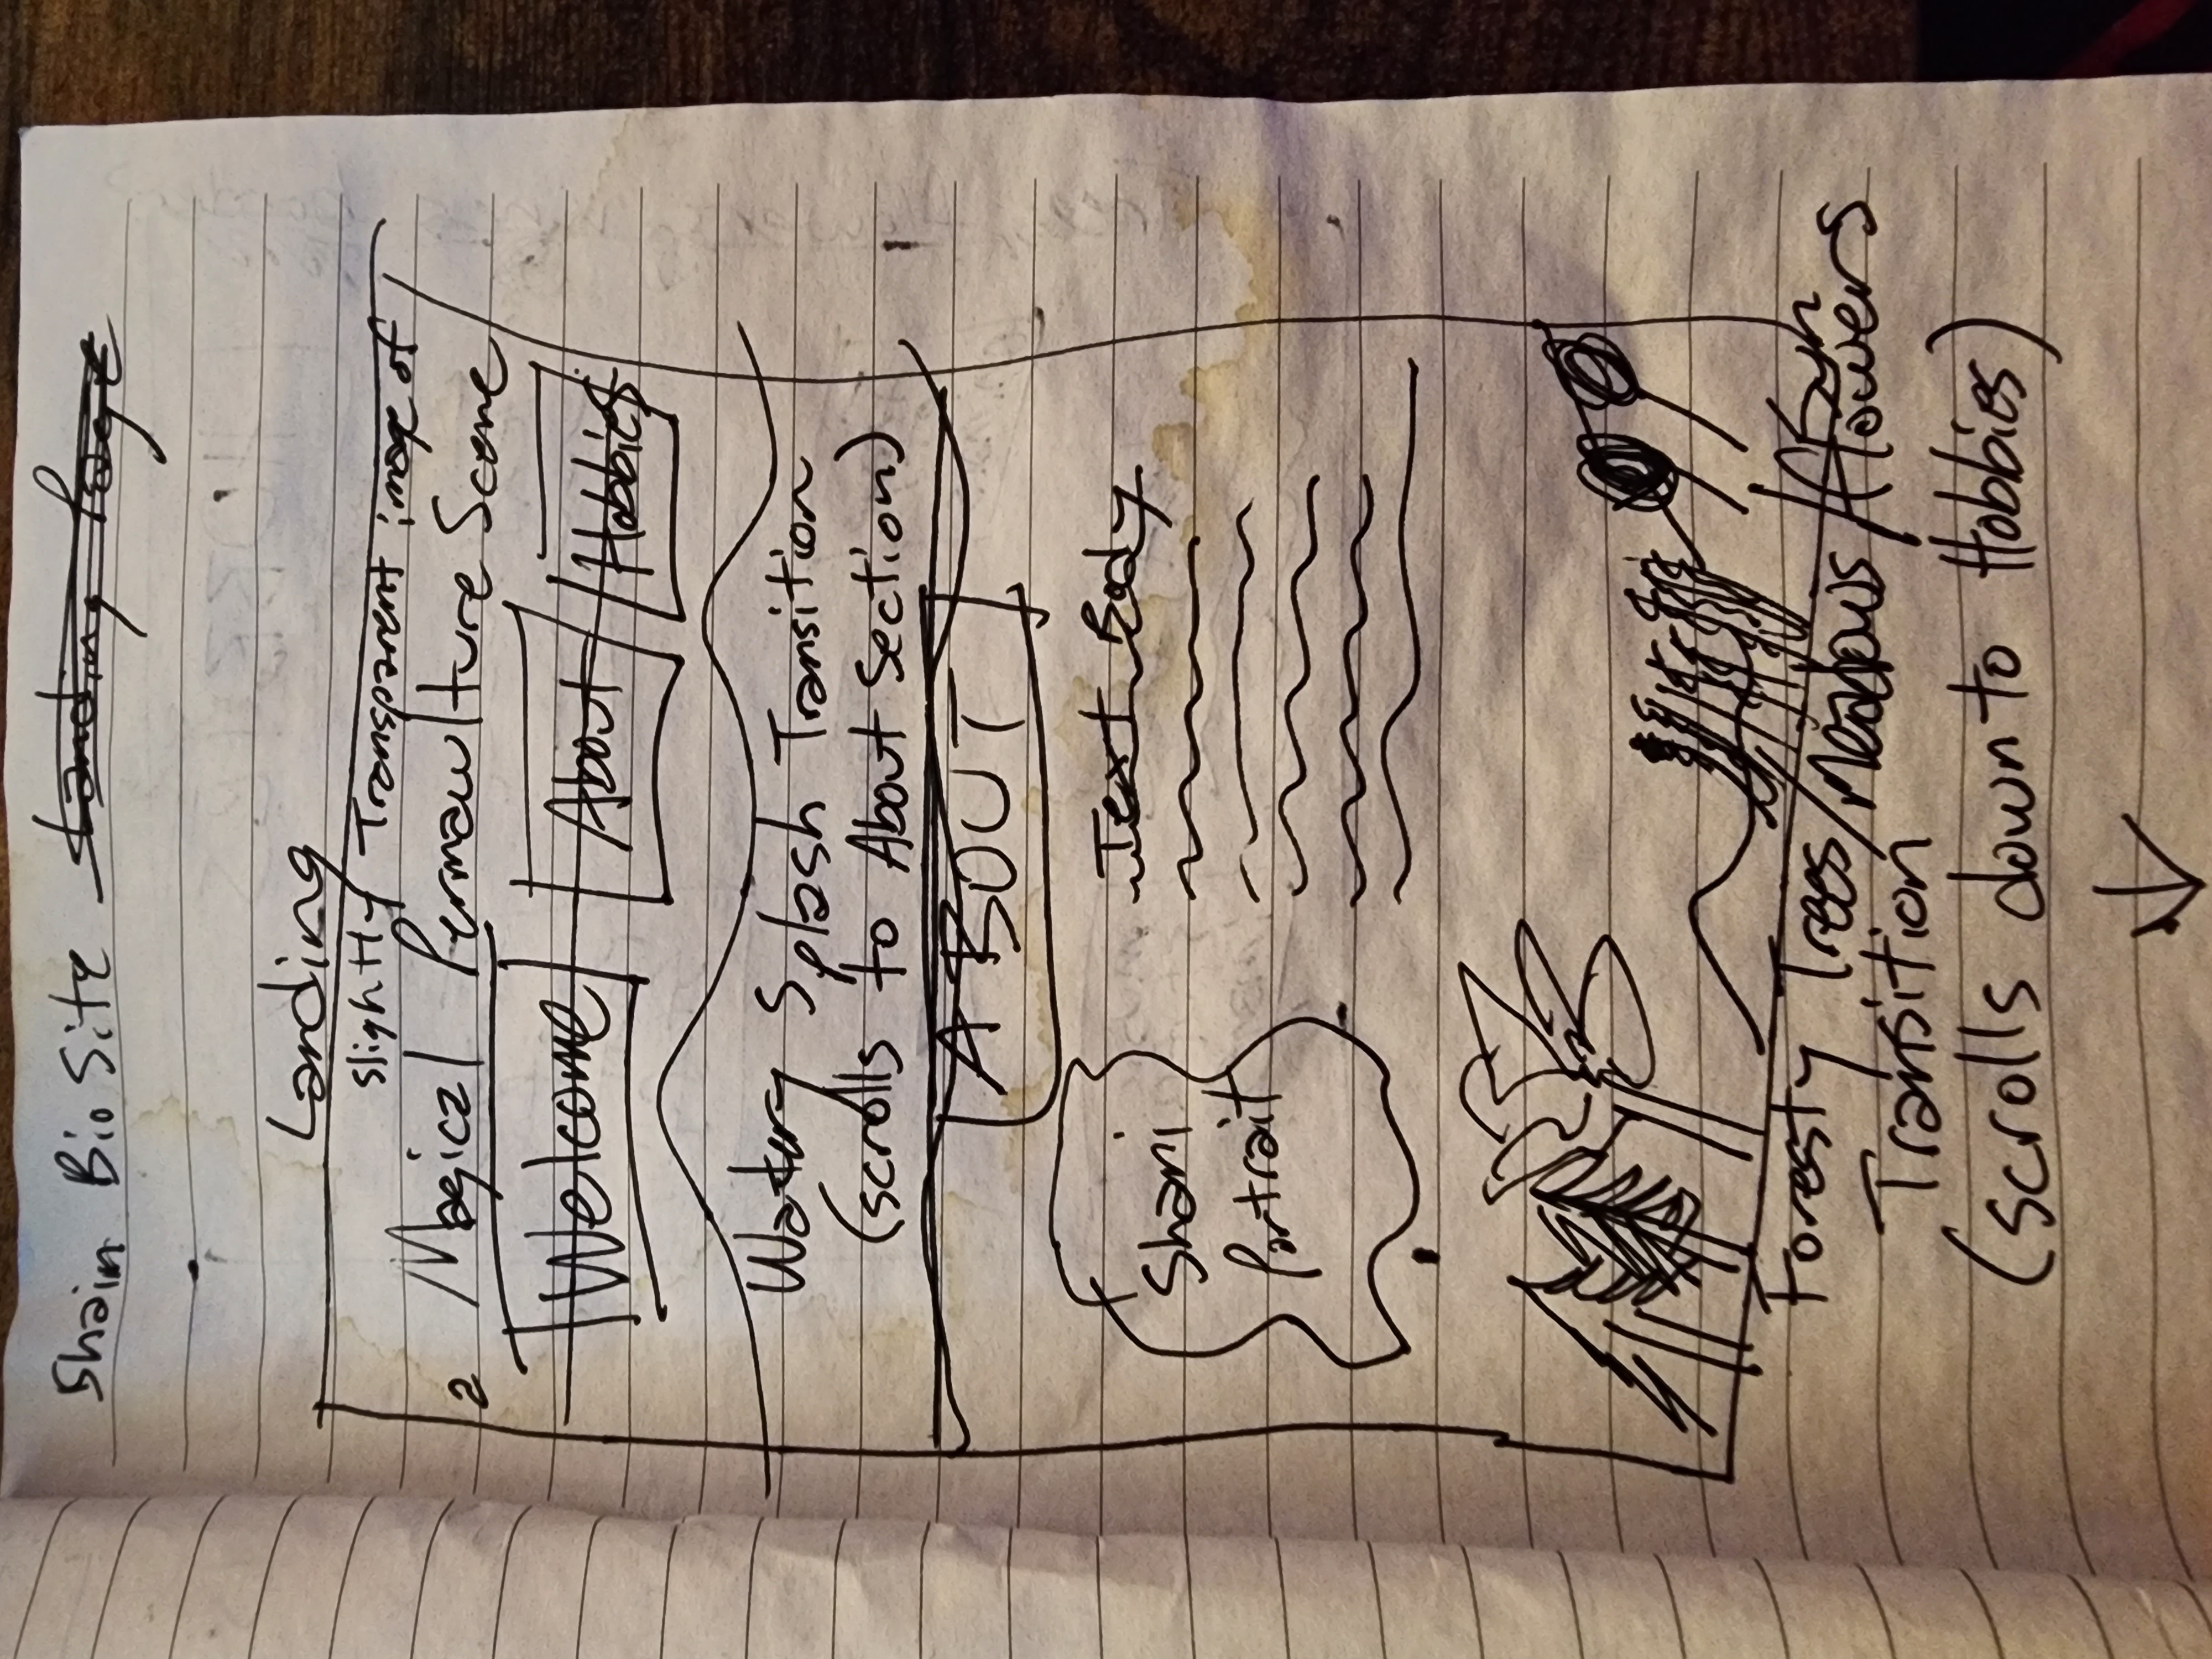 Shain Bio Site Landing Page
Landing
slightly Transparent image of
a Magical Permaculture Scene
Welcome About Hobbies
Watery Splash Transition
(scrolls to About Section)
ABOUT
Text Body
Shani
Portrait
Foresty Trees/Meadows/Sun
flowers
Transition
(scrolls down to Hobbies)